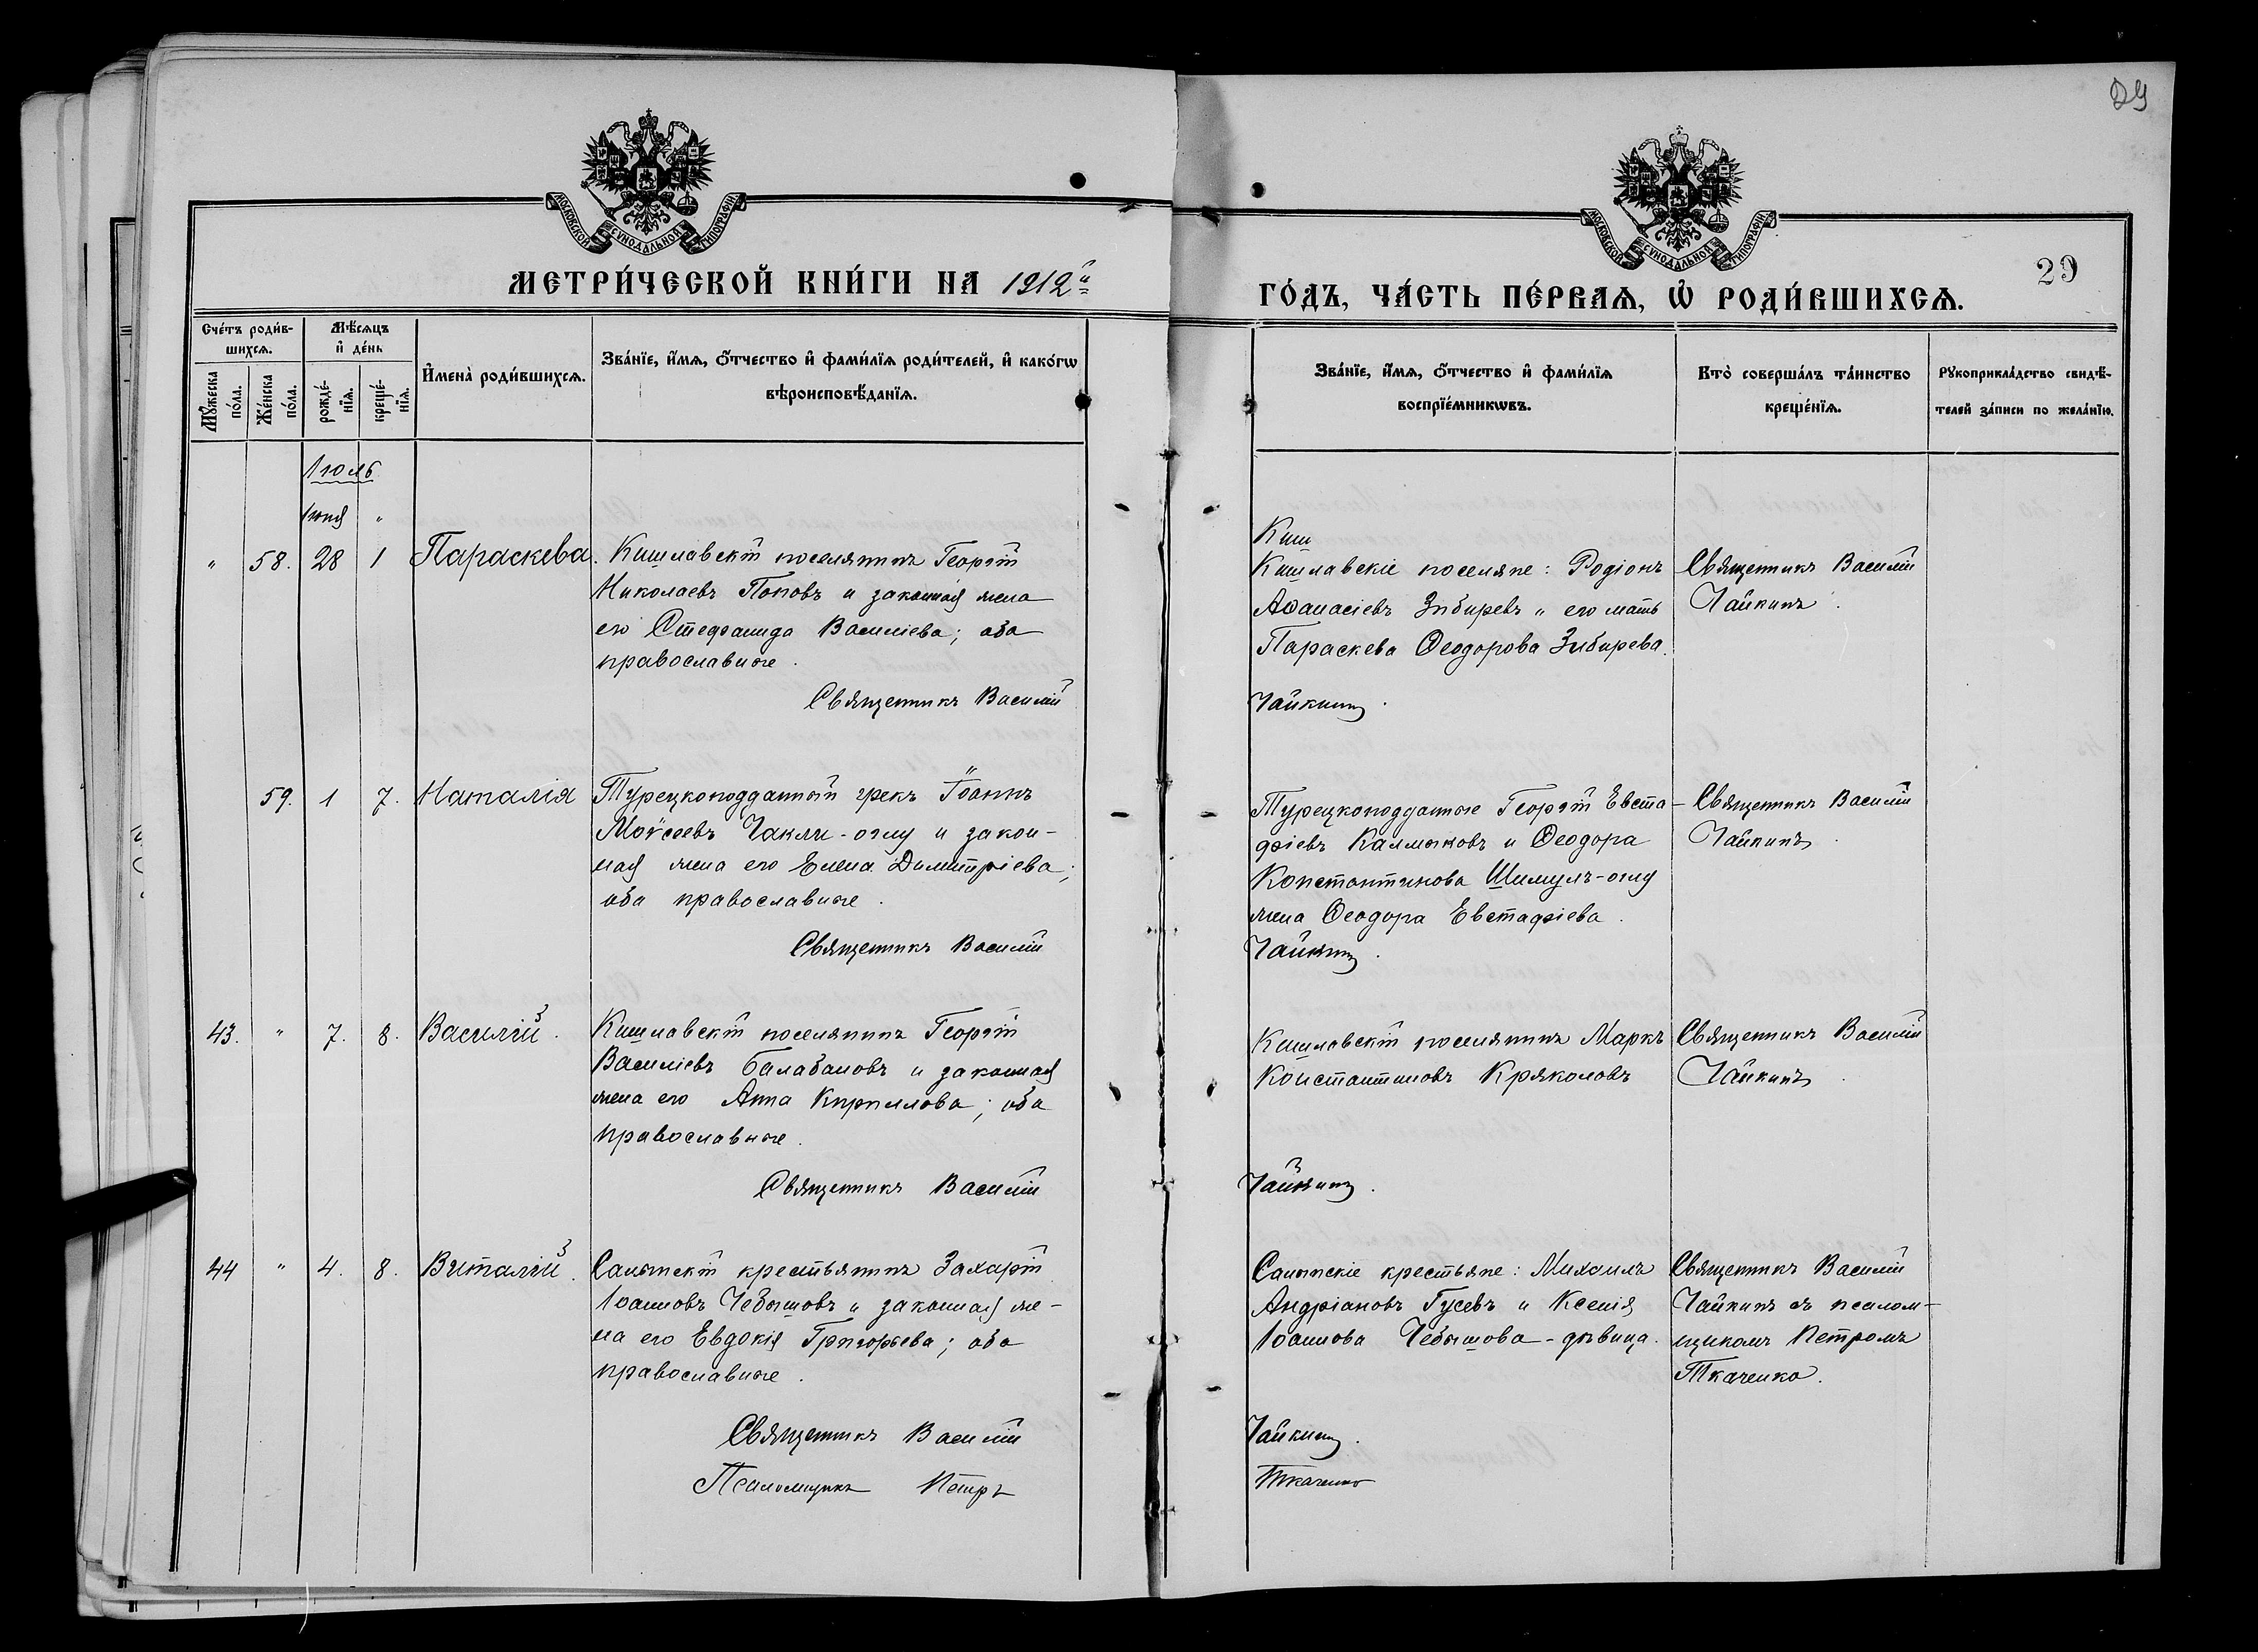 29
МОСКОВСКОЙ СУНОДАЛЬНОЙ ТИПОГРАФІИ
МОСКОВСКОЙ СУНОДАЛЬНОЙ ТИПОГРАФІИ
МЕТРИ́ЧЕСКОЙ КНИ́ГИ НА 1912й
ГО́ДЪ, ЧА́СТЬ ПЕ́РВАЯ, Ѡ РОДИ́ВШИХСЯ.
29
Сче́тъ роди́в-
шихся.
Мꙋ́жеска
по́ла.
Же́нска
по́ла.
Мѣ́сяцъ
и де́нь
рожде́-
нїя.
креще́-
нїя.
Имена̀ роди́вшихся.
Зва́нїе, и́мя, о́тчество и фами́лїя роди́телей, и како́гѡ
вѣроисповѣ́данїя.
Зва́нїе, и́мя, о́тчество и фами́лїя
воспрїе́мникѡвъ.
Кто̀ соверша́лъ та́инство
креще́нїя.
Рꙋкоприкла́дство свидѣ́-
телей за́писи по жела́нїю.
Іюль
Іюня "
" 58. 28 1 Параскева.
Кишлавскій поселянинъ Георгій
Николаевъ Поповъ и законная жена
его Стефанида Василіева; оба
православные.
Священникъ Василій
Киш
Кишлавскіе поселяне: Родіонъ
Аѳанасіевъ Зибиревъ и его мать
Параскева Ѳеодорова Зибирева.
Чайкинъ.
Священникъ Василій
Чайкинъ.
59. 1 7. Наталія
Турецкоподданный грекъ Іоаннъ
Моѵсеевъ Чакли-оглу и закон-
ная жена его Елена Димитріева;
оба православные.
Священникъ Василій
Турецкоподданные Георгій Евста-
фіевъ Калмыковъ и Ѳеодора
Константинова Шимулъ-оглу
жена Ѳеодора Евстафіева.
Чайкинъ.
Священникъ Василій
Чайкинъ.
43. " 7. 8. Василій.
Кишлавскій поселянинъ Георгій
Василіевъ Балабановъ и законная
жена его Анна Кириллова; оба
православные.
Священникъ Василій
Кишлавскій поселянинъ Маркъ
Константиновъ Кряколовъ
Чайкинъ.
Священникъ Василій
Чайкинъ.
44 " 4. 8. Виталій.
Салынскій крестьянинъ Захарій
Іоанновъ Чебышовъ и законная же-
на его Евдокія Григорьева; оба
православные.
Священникъ Василій
Псаломщикъ Петръ
Салынскіе крестьяне: Михаилъ
Андріановъ Гусевъ и Ксенія
Іоаннова Чебышова - дѣвица.
Чайкинъ.
Ткаченко
Священникъ Василій
Чайкинъ съ псалом-
щикомъ Петромъ
Ткаченко.